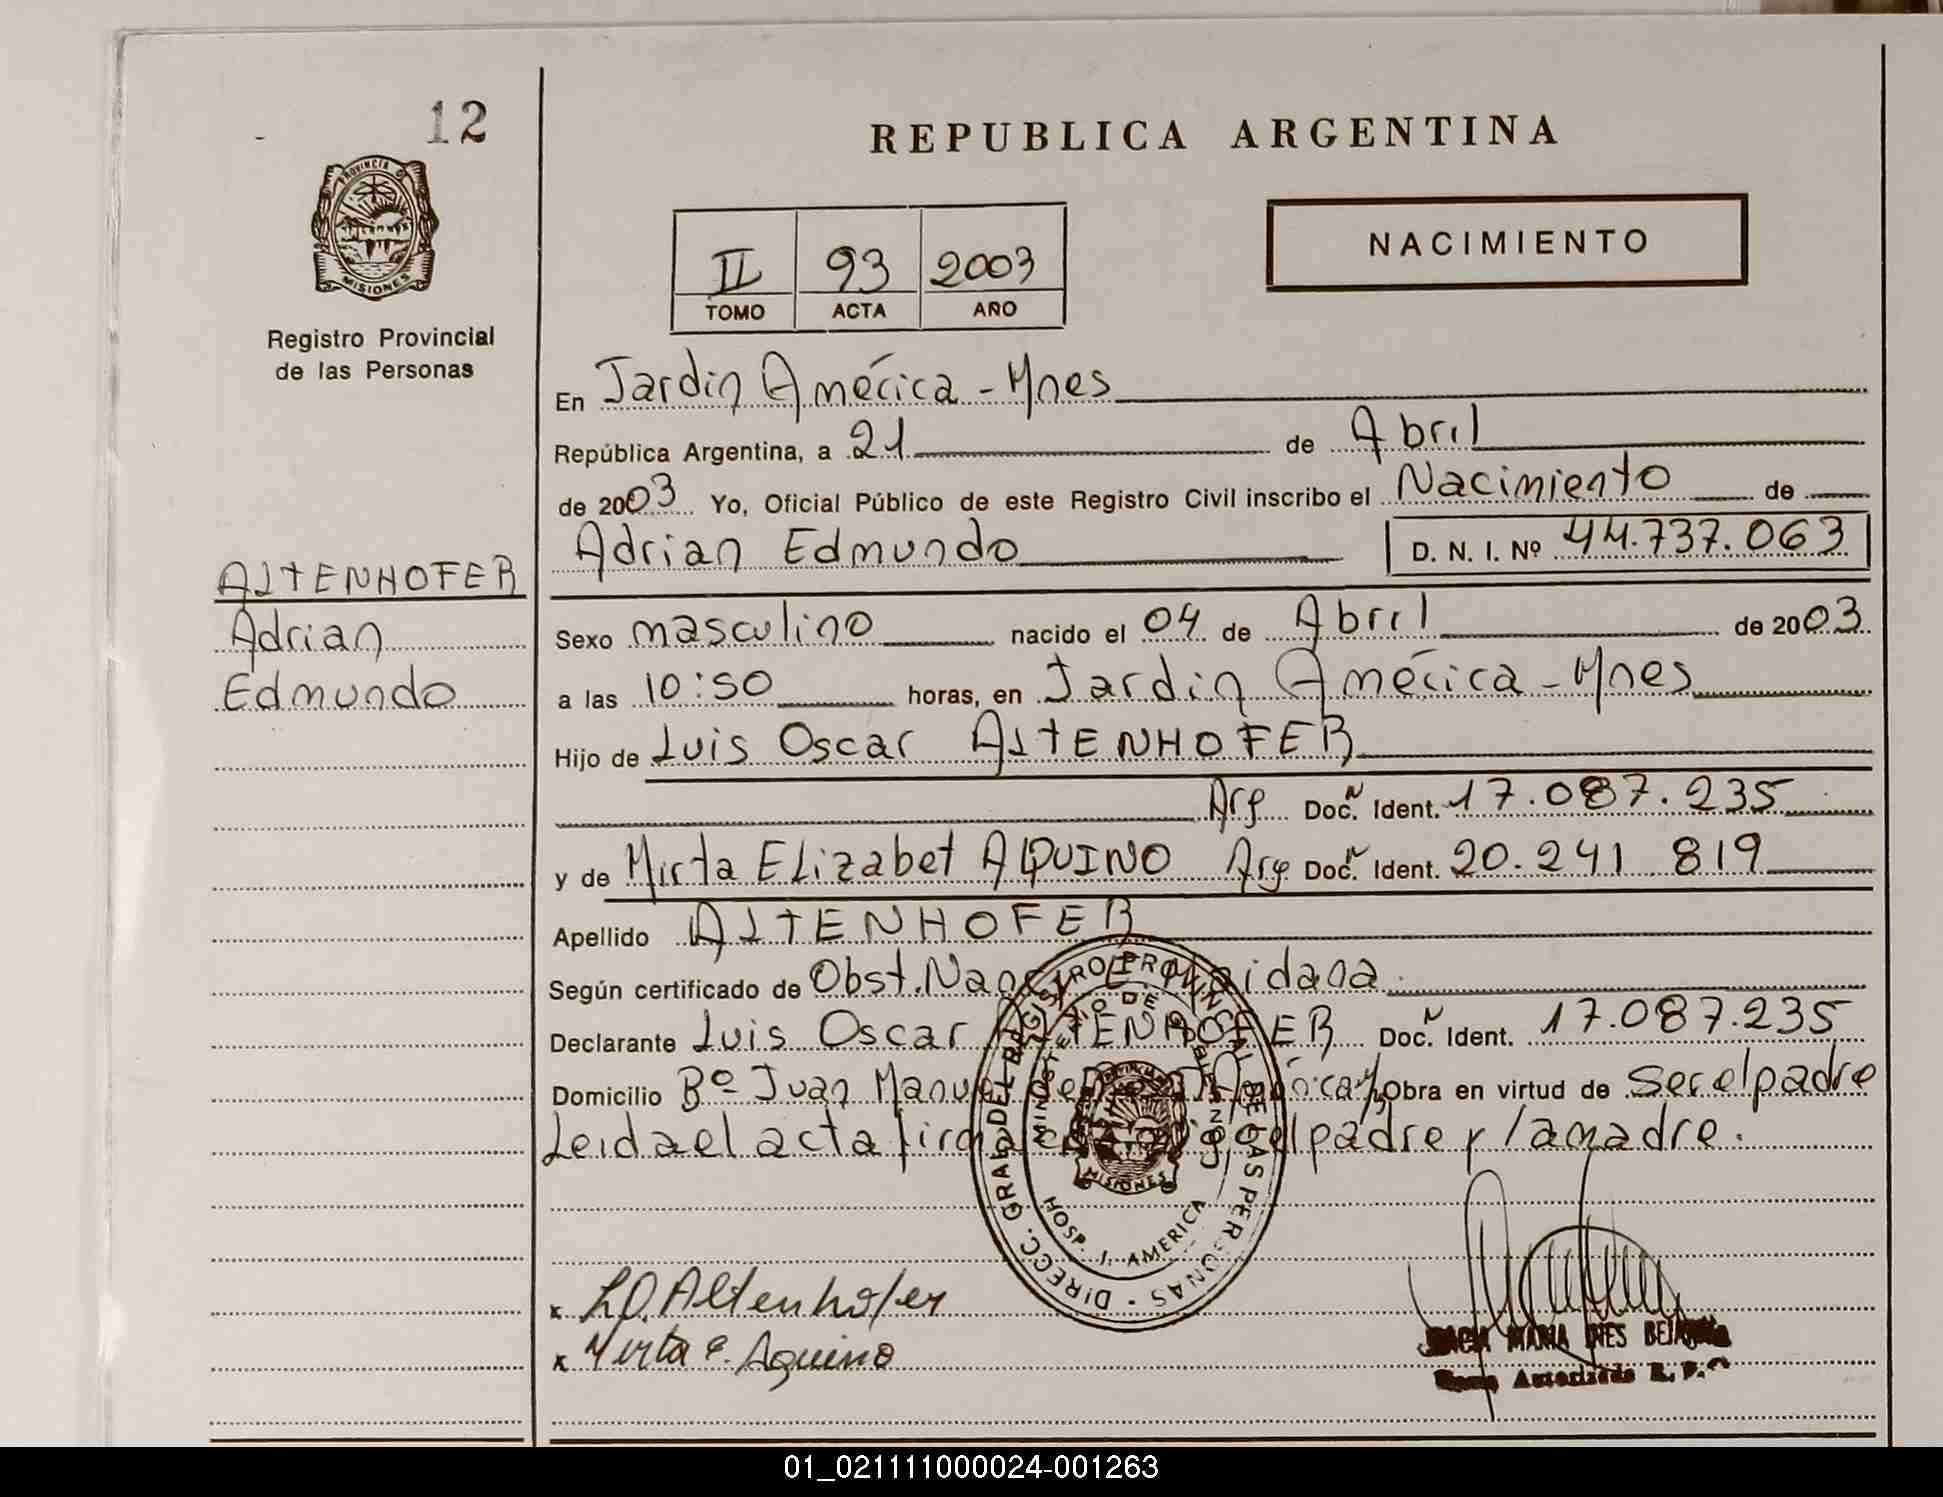 12
PROVINCIA DE
MISIONES
Registro Provincial
de las Personas
ALTENHOFER
Adrian
Edmundo
REPUBLICA ARGENTINA
II 93 2003
TOMO ACTA AÑO
NACIMIENTO
En Jardin América - Mnes
República Argentina, a 21 de Abril
de 2003 Yo, Oficial Público de este Registro Civil inscribo el Nacimiento de
Adrian Edmundo D. N. I. Nº 44.737.063
Sexo masculino nacido el 04 de Abril de 2003
a las 10:50 horas, en Jardin América - Mnes
Hijo de Luis Oscar ALTENHOFER
Arg Doc. N Ident. 17.087.235
y de Mirta Elizabet AQUINO Arg Doc. N Ident. 20.241.819
Apellido ALTENHOFER
Según certificado de Obst.
Declarante Luis Oscar ALTENHOFER Doc. N Ident. 17.087.235
Domicilio Bº Juan Manuel de Obra en virtud de ser el padre
Leida el acta el padre y la madre.
DIRECC. GRAL DEL REGISTRO PROVINCIAL DE LAS PERSONAS
MINISTERIO DE GOBIERNO
MISIONES
HOSP. J. AMERICA
x L.O. Altenhofer
x Mirta E. Aquino
MARIA INES
Autorizada R. P.
01_021111000024-001263